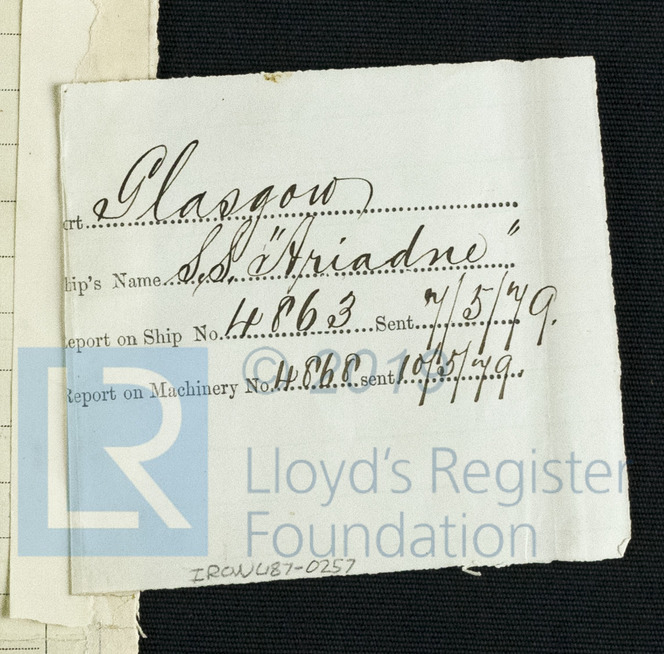 ort Glasgow
hip's Name S.S. "Ariadne"
eport on Ship No. 4863 Sent 7/5/79.
Report on Machinery No. 4868 sent 10/5/79.
© 2019
LR
Lloyd's Register
Foundation
IRON487-0257